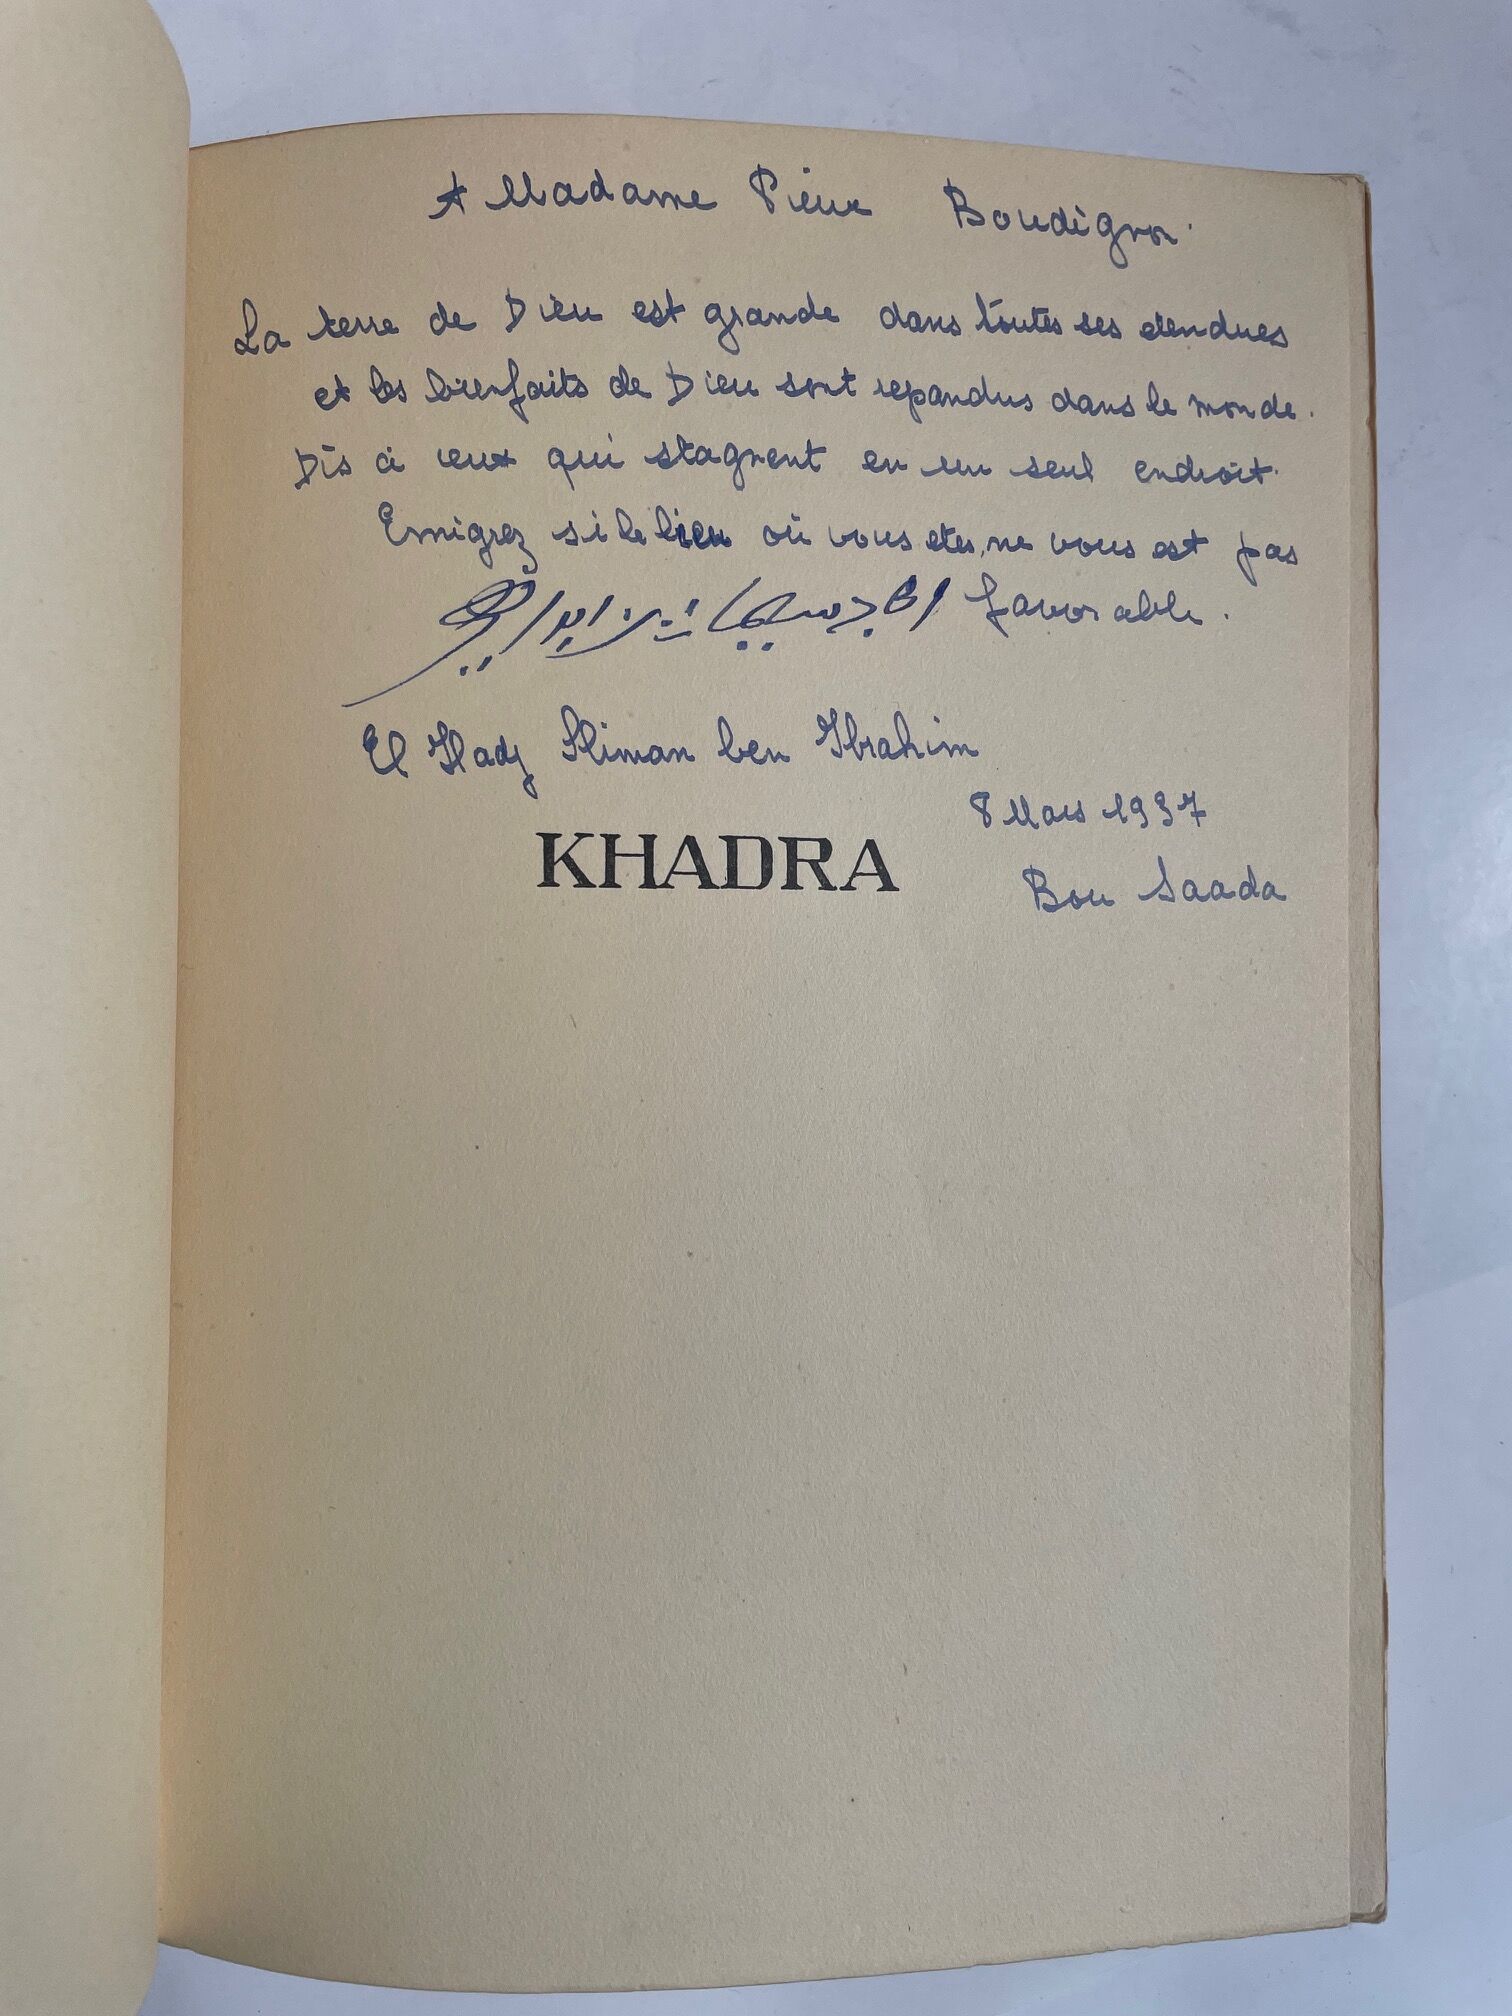 A Madame Pierre Boudignon.
La terre de Dieu est grande dans toutes ses etendues
et les bienfaits de Dieu sont repandus dans le monde.
Dis à ceux qui stagnent en un seul endroit.
Emigrez si le lieu où vous etes, ne vous est pas
favorable. الحاج سليمان بن ابراهيم
El Hadj Sliman ben Ibrahim
8 Mars 1937
KHADRA
Bou Saada